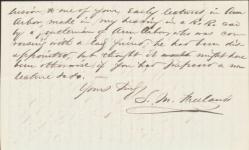 lusion to one of your early lectures in Ann
Arbor, made in my hearing in a R.R. car
by a gentleman of Ann Arbor, who was con
versing with a lady friend; he had been dis
appointed, but thought it might have
been otherwise if you had prepared a
lecture &c &c.
Yours truly
S. M.